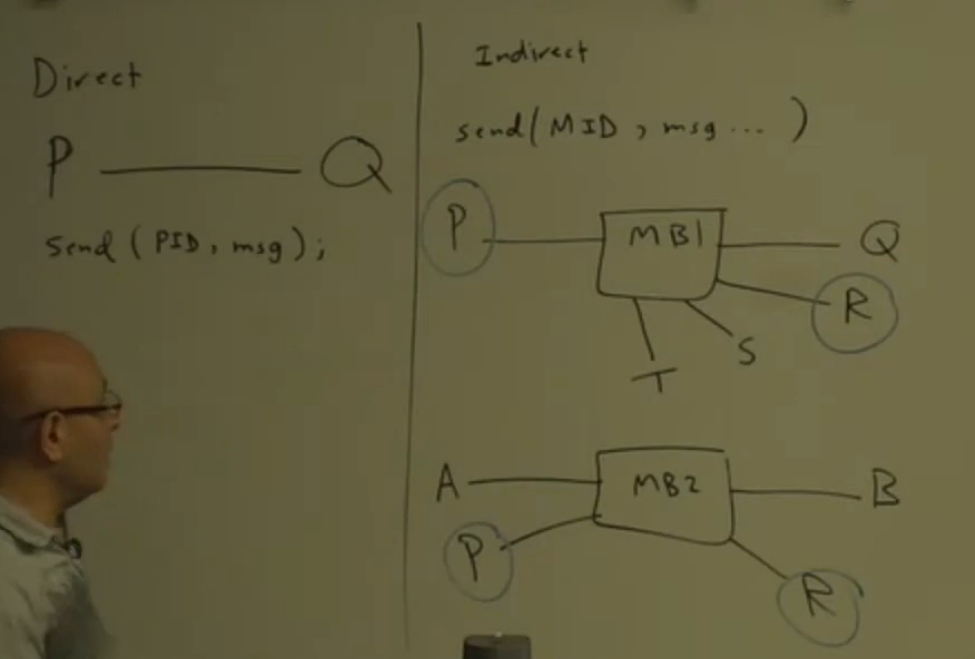 Direct
P Q
Send ( PID, msg );
Indirect
send( MID , msg ... )
P MB1 Q
R
S
T
A MB2 B
P
R